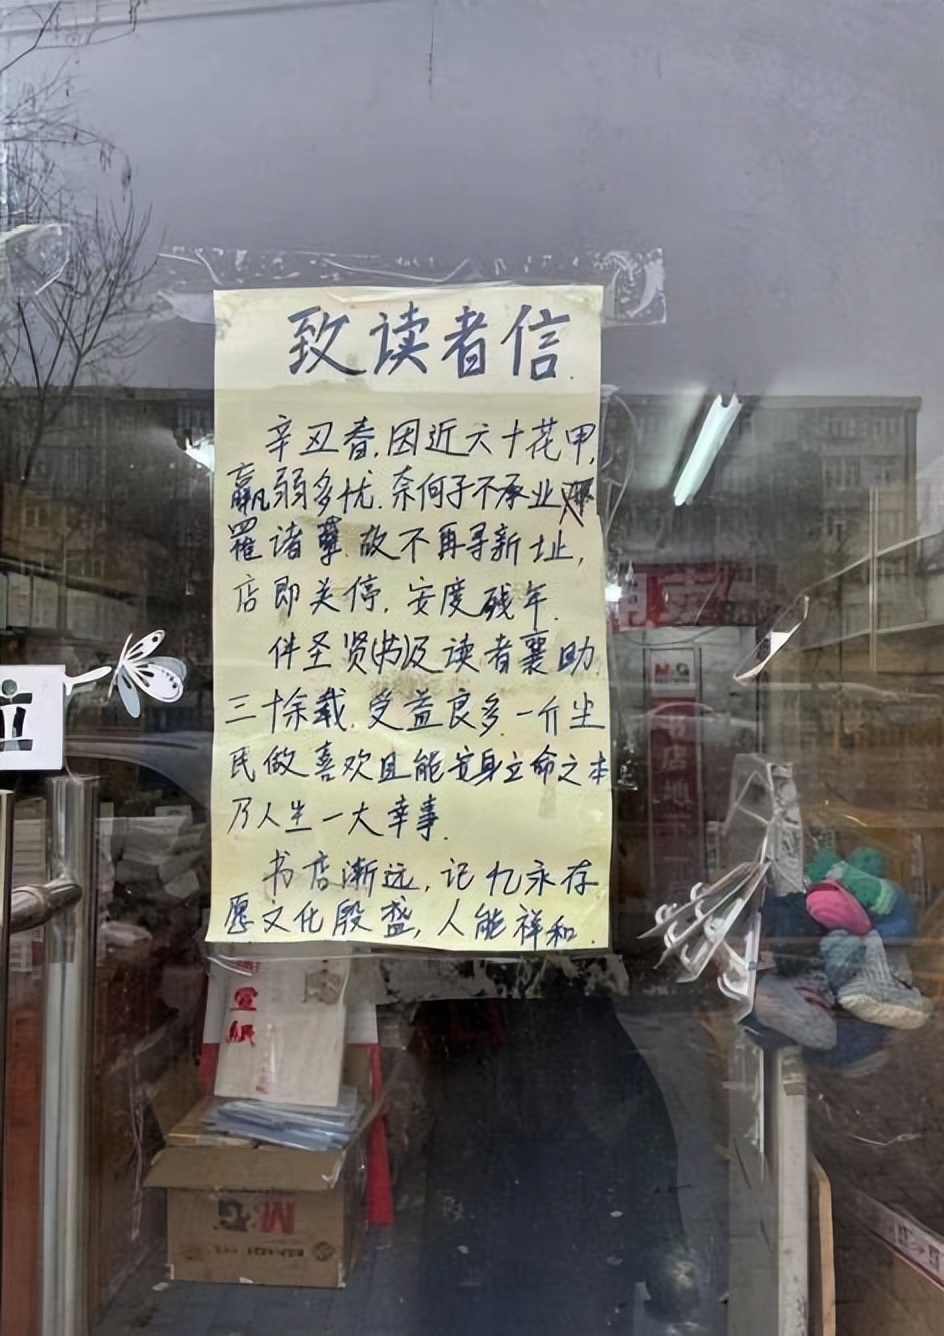 致读者信
辛丑春.因近六十花甲,
羸弱多忧.奈何子不承业
罹诸孽.故不再寻新址,
店即关停.安度残年.
伴圣贤(书)及读者襄助
三十余载.受益良多.一介生
民做喜欢且能安身立命之本
乃人生一大幸事.
书店渐远,记忆永存
愿文化殷盛,人能祥和.
宣
纸
M&G
书店地下一层